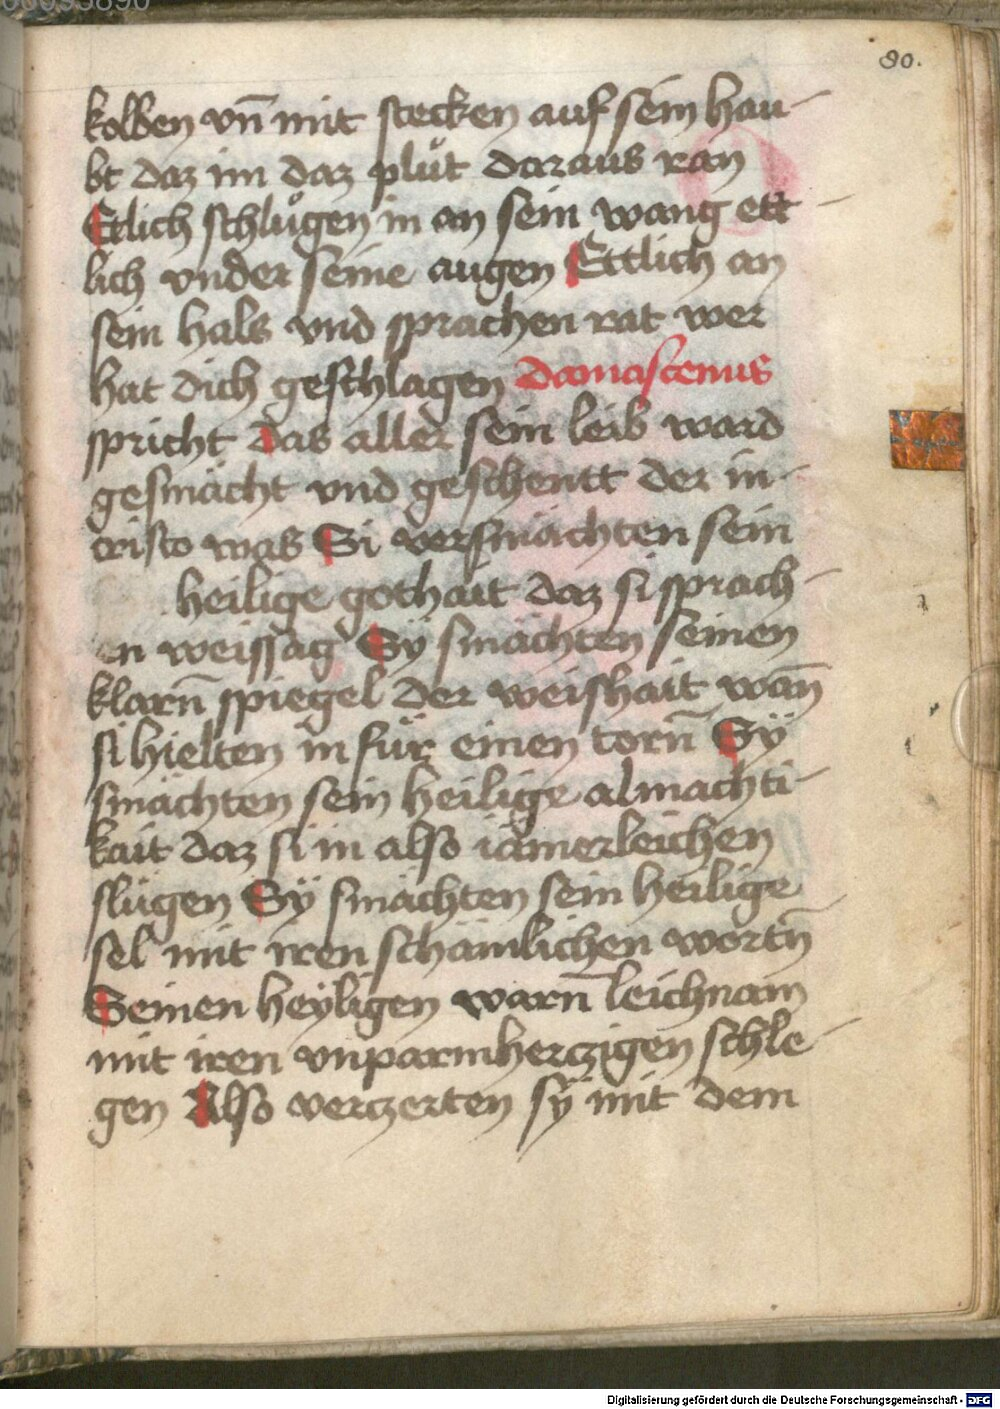 80.
kolben vn̄ mit stecken auf sein hau-
bt daz im daz plůt daraus ran
Etlich schlůgen in an sein wang ett-
lich vnder seine augen Ettlich an
sein hals vnd sprachen rat wer
hat dich geschlagen Damascenus
spricht Das aller sein leib ward
gesmächt vnd geschentt der in
cristo was Si versmächten sein
heilige gothait daz si sprach-
en weissag Sÿ smächten seinen
klarn̄ spiegel der weishait wan̄
si hielten in für einen torn̄ Sÿ
smächten sein heilige almachti-
kait daz si in also iämerleichen
slůgen Sÿ smächten sein heilige
sel mit iren schämlichen wortn̄
Seinen heÿligen warn̄ leichnam
mit iren vnparmherczigen schle-
gen Also verczerten sÿ mit dem
Digitalisierung gefördert durch die Deutsche Forschungsgemeinschaft - DFG